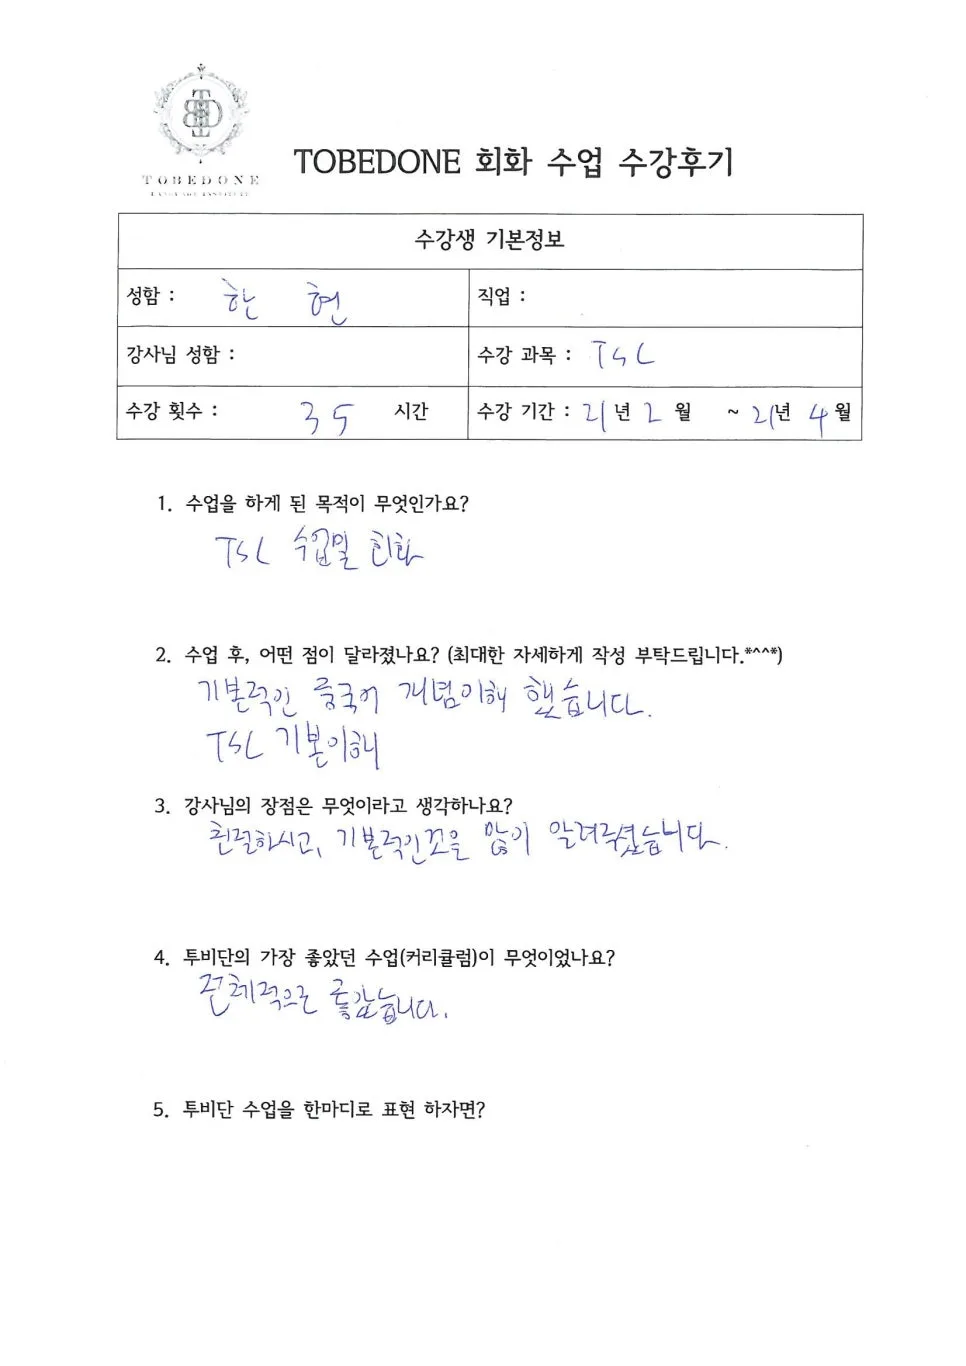 TOBEDONE
LANGUAGE INSTITUTE
TOBEDONE 회화 수업 수강후기
수강생 기본정보
성함 : 한 현
직업 :
강사님 성함 :
수강 과목 : TSC
수강 횟수 : 35 시간
수강 기간 : 21년 2월 ~ 21년 4월
1. 수업을 하게 된 목적이 무엇인가요?
TSC 수업및 회화
2. 수업 후, 어떤 점이 달라졌나요? (최대한 자세하게 작성 부탁드립니다.*^^*)
기본적인 중국어 개념이해 했습니다.
TSC 기본이해
3. 강사님의 장점은 무엇이라고 생각하나요?
친절하시고, 기본적인것을 많이 알려주셨습니다.
4. 투비단의 가장 좋았던 수업(커리큘럼)이 무엇이었나요?
전체적으로 좋았습니다.
5. 투비단 수업을 한마디로 표현 하자면?